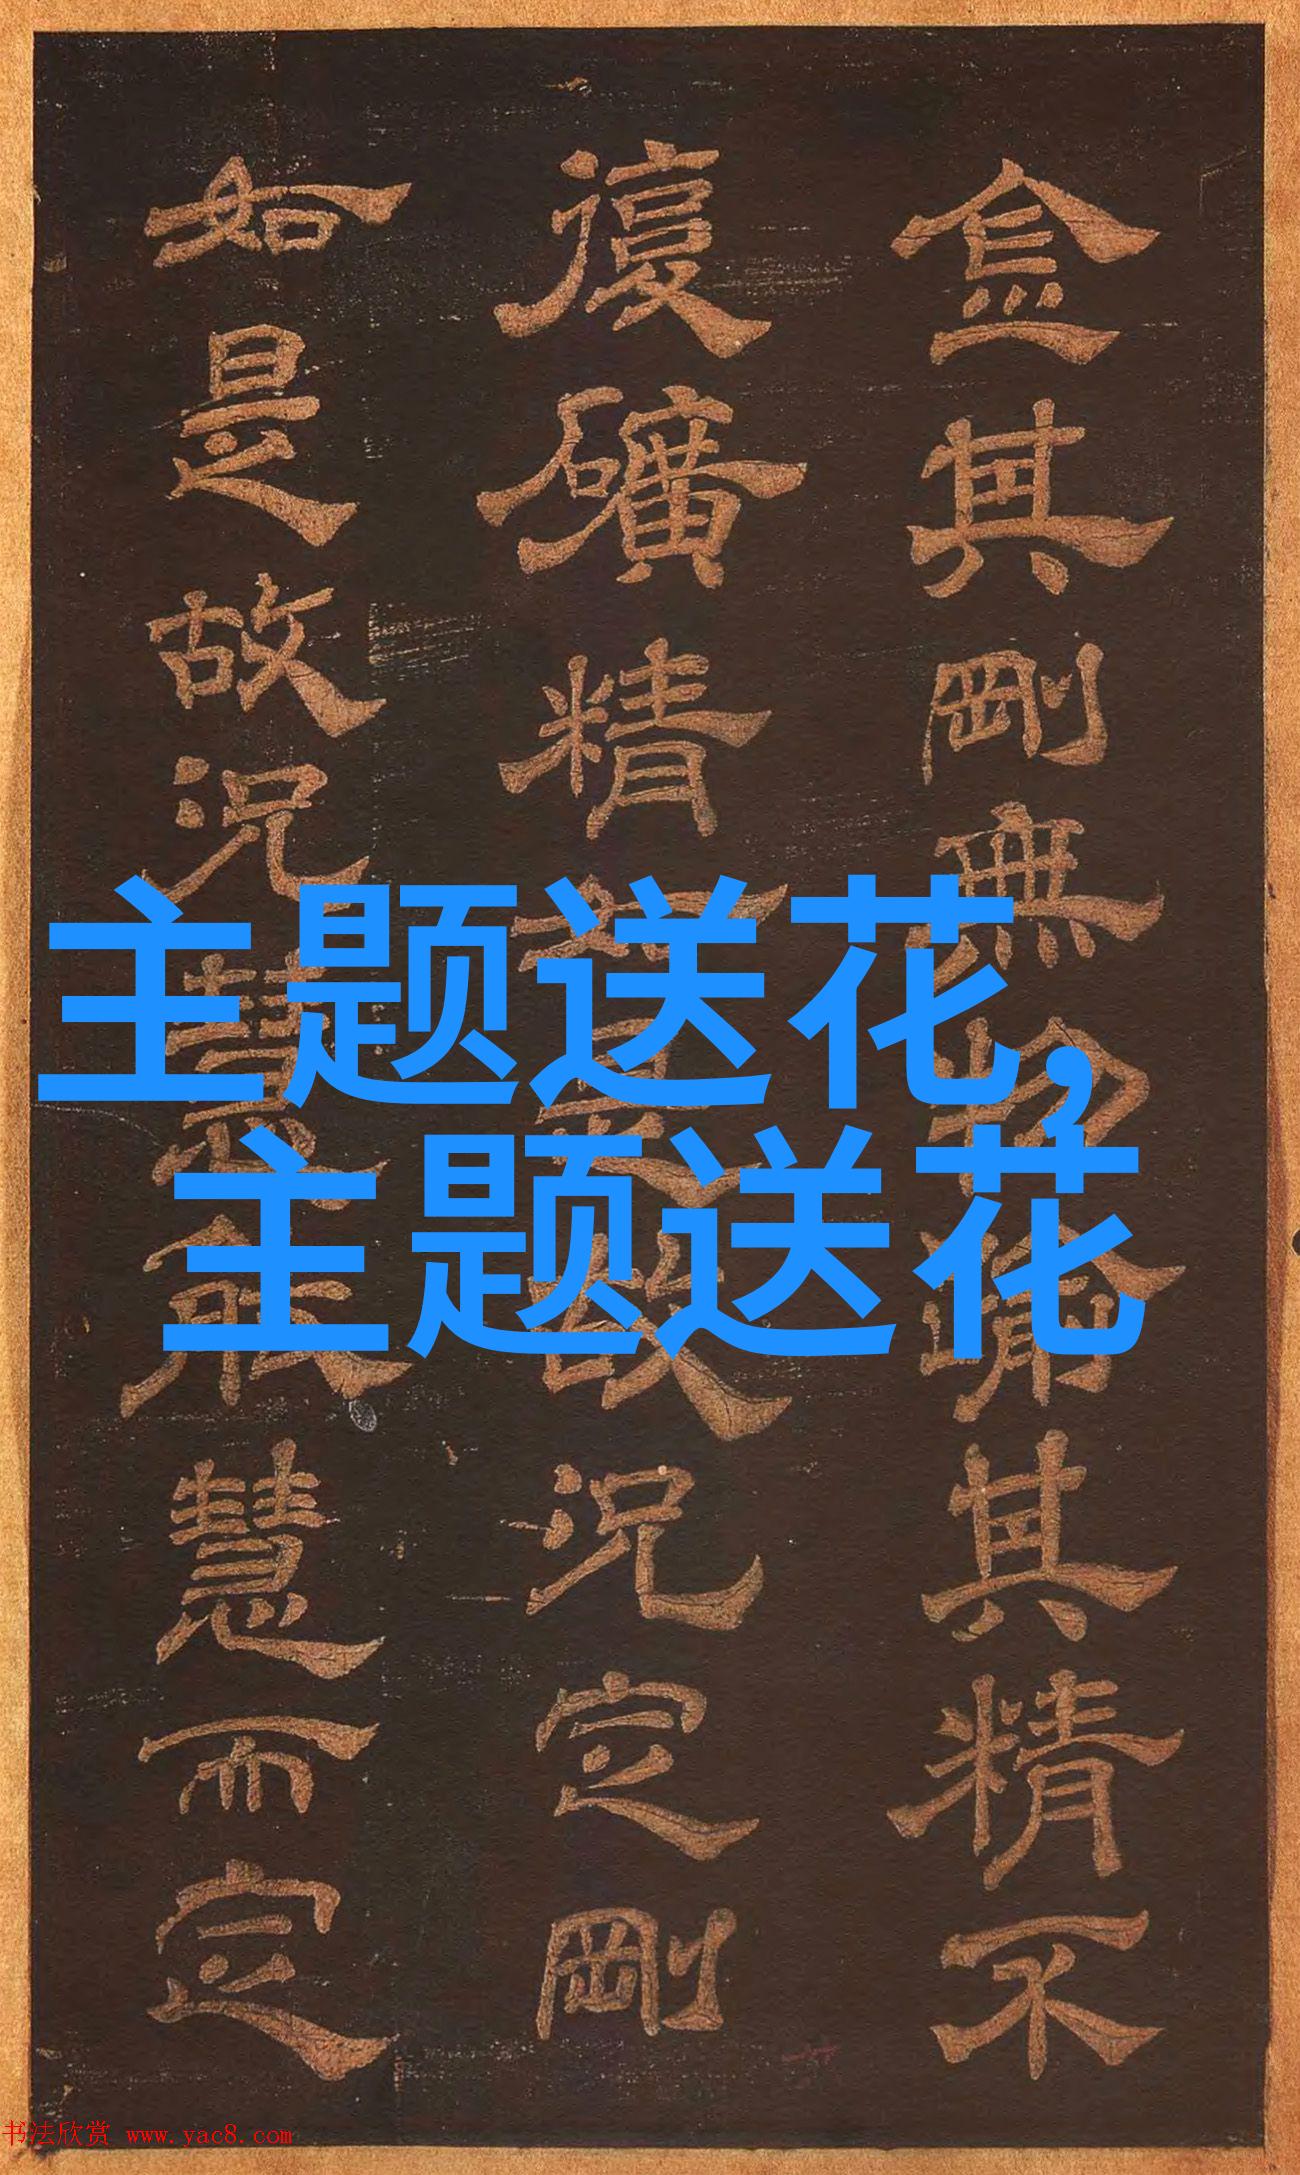 金其剛無物踰其精不
復礦精如是故況定剛
如是故況慧慧而定
主题送花,
主题送花
书法欣赏 www.yac8.com